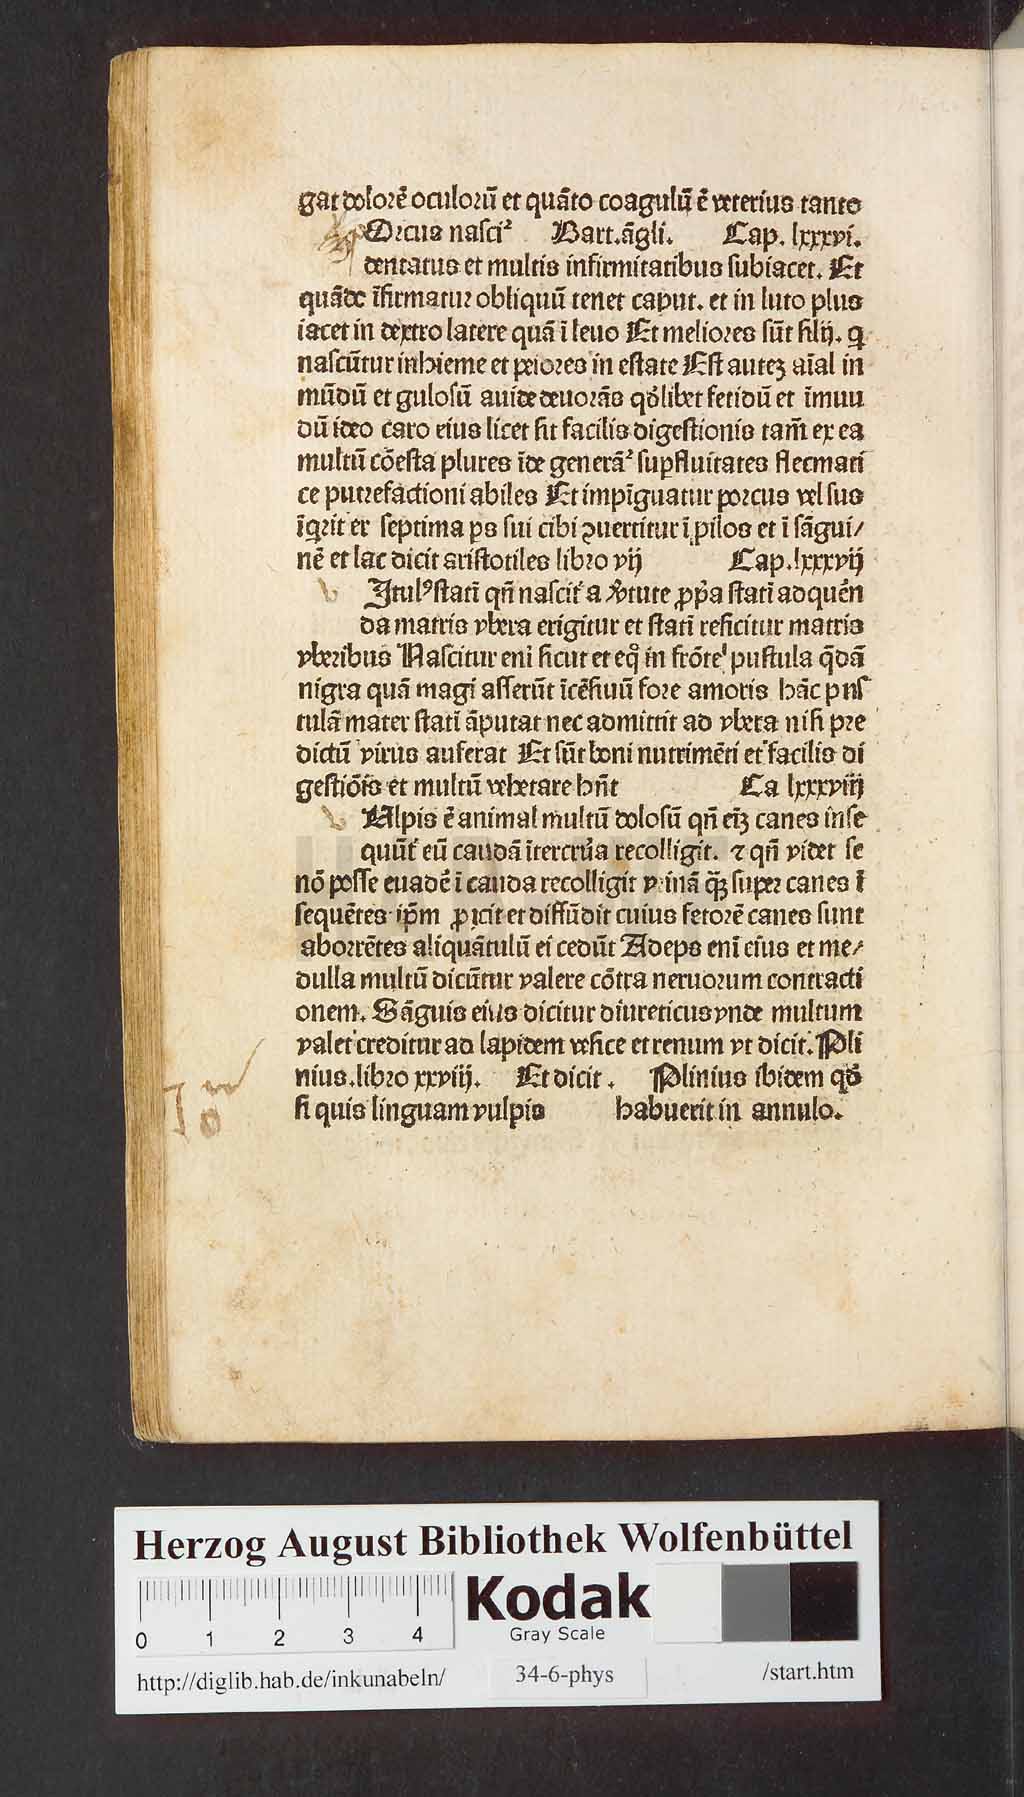 gat dolorē oculorū et quāto coagulū ē veterius tanto
Orcus nasci² Bart.āgli. Cap. lxxxvi.
dentatus et multis infirmitatibus subiacet. Et
quādo īfirmatur obliquū tenet caput. et in luto plus
iacet in dextro latere quā ī leuo Et meliores sūt filij. q
nascūtur in hieme et peiores in estate Est autez aīal in
mūdū et gulosū auide deuorās qđlibet fetidū et īmuu
dū ideo caro eius licet sit facilis digestionis tam̄ ex ea
multū cōesta plures īde generā² supfluitates flecmati
ce putrefactioni abiles Et impīguatur porcus vel sus
īqrit er septima ps sui cibi ꝯuertitur ī pilos et ī sāgui/
nē et lac dicit aristotiles libro vij Cap.lxxxvij
v Itulꝰ statī qn̄ nascit' a v̓tute ꝓpa statī ad quēn
da matris vbera erigitur et statī reficitur matris
vberibus Nascitur enī sicut et eq° in frōte pustula q̄dā
nigra quā magi asserūt īcēsiuū fore amoris hāc pus
tulā mater statī āputat nec admittit ad vbera nisi pre
dictū virus auferat Et sūt boni nutrimēti et facilis di
gestiōis et multū vehetare hn̄t Ca lxxxviij
v Vlpis ē animal multū dolosū qn̄ eīz canes inse
quūt' eū caudā īter crura recolligit. ⁊ qn̄ videt se
nō posse euadē ī cauda recolligit vrinā q̄ꝫ super canes ī
sequētes ip̄m ꝓijcit et diffūdit cuius fetorē canes sunt
aborrētes aliquātulū ei cedūt Adeps enī eius et me/
dulla multū dicūtur valere cōtra neruorum contracti
onem. Sāguis eius dicitur diureticus vnde multum
valet creditur ad lapidem vesice et renum vt dicit. Pli
nius.libro xxviij. Et dicit. Plinius ibidem qđ
si quis linguam vulpis habuerit in annulo.
Herzog August Bibliothek Wolfenbüttel
0 1 2 3 4
Kodak
Gray Scale
http://diglib.hab.de/inkunabeln/ 34-6-phys /start.htm